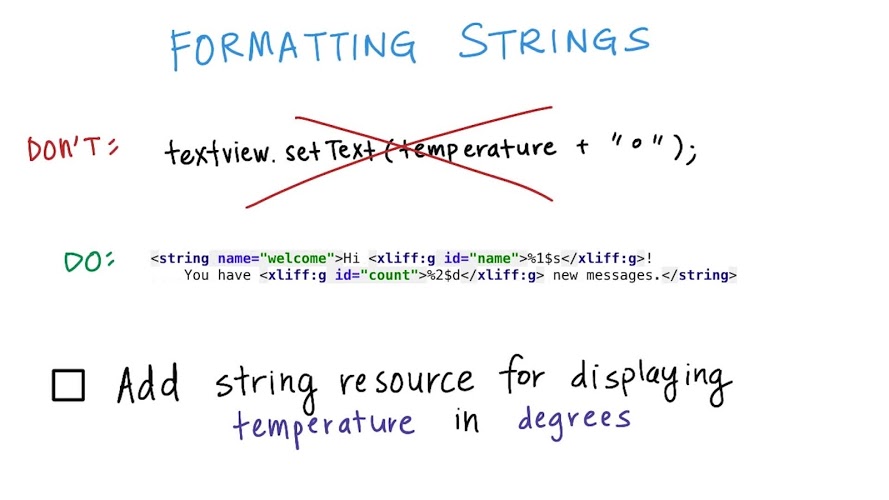 FORMATTING STRINGS
DON'T: textview.setText(temperature + "°");
DO: <string name="welcome">Hi <xliff:g id="name">%1$s</xliff:g>!
You have <xliff:g id="count">%2$d</xliff:g> new messages.</string>
Add string resource for displaying
temperature in degrees